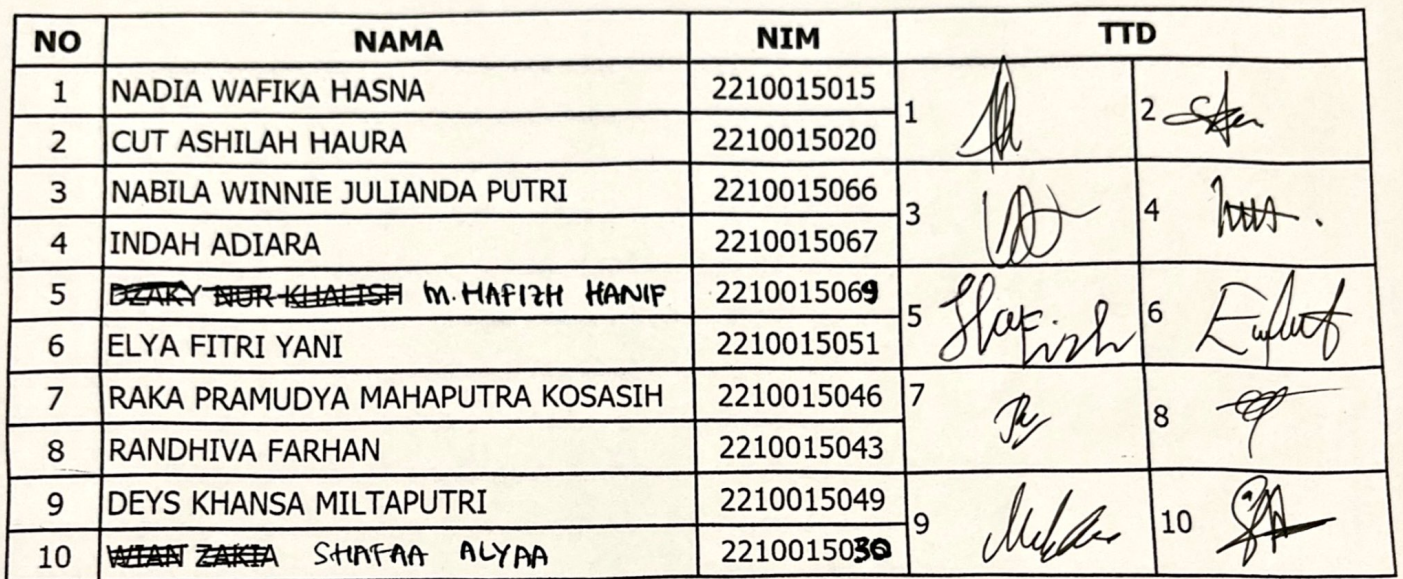 NO NAMA NIM TTD
1 NADIA WAFIKA HASNA 2210015015 1 2
2 CUT ASHILAH HAURA 2210015020
3 NABILA WINNIE JULIANDA PUTRI 2210015066 3 4
4 INDAH ADIARA 2210015067
5 DZAKY NUR KHALISH M. HAFIZH HANIF 2210015069 5 Hafizh 6
6 ELYA FITRI YANI 2210015051
7 RAKA PRAMUDYA MAHAPUTRA KOSASIH 2210015046 7 8
8 RANDHIVA FARHAN 2210015043
9 DEYS KHANSA MILTAPUTRI 2210015049 9 10
10 WIAN ZAKIA SHAFAA ALYAA 2210015030